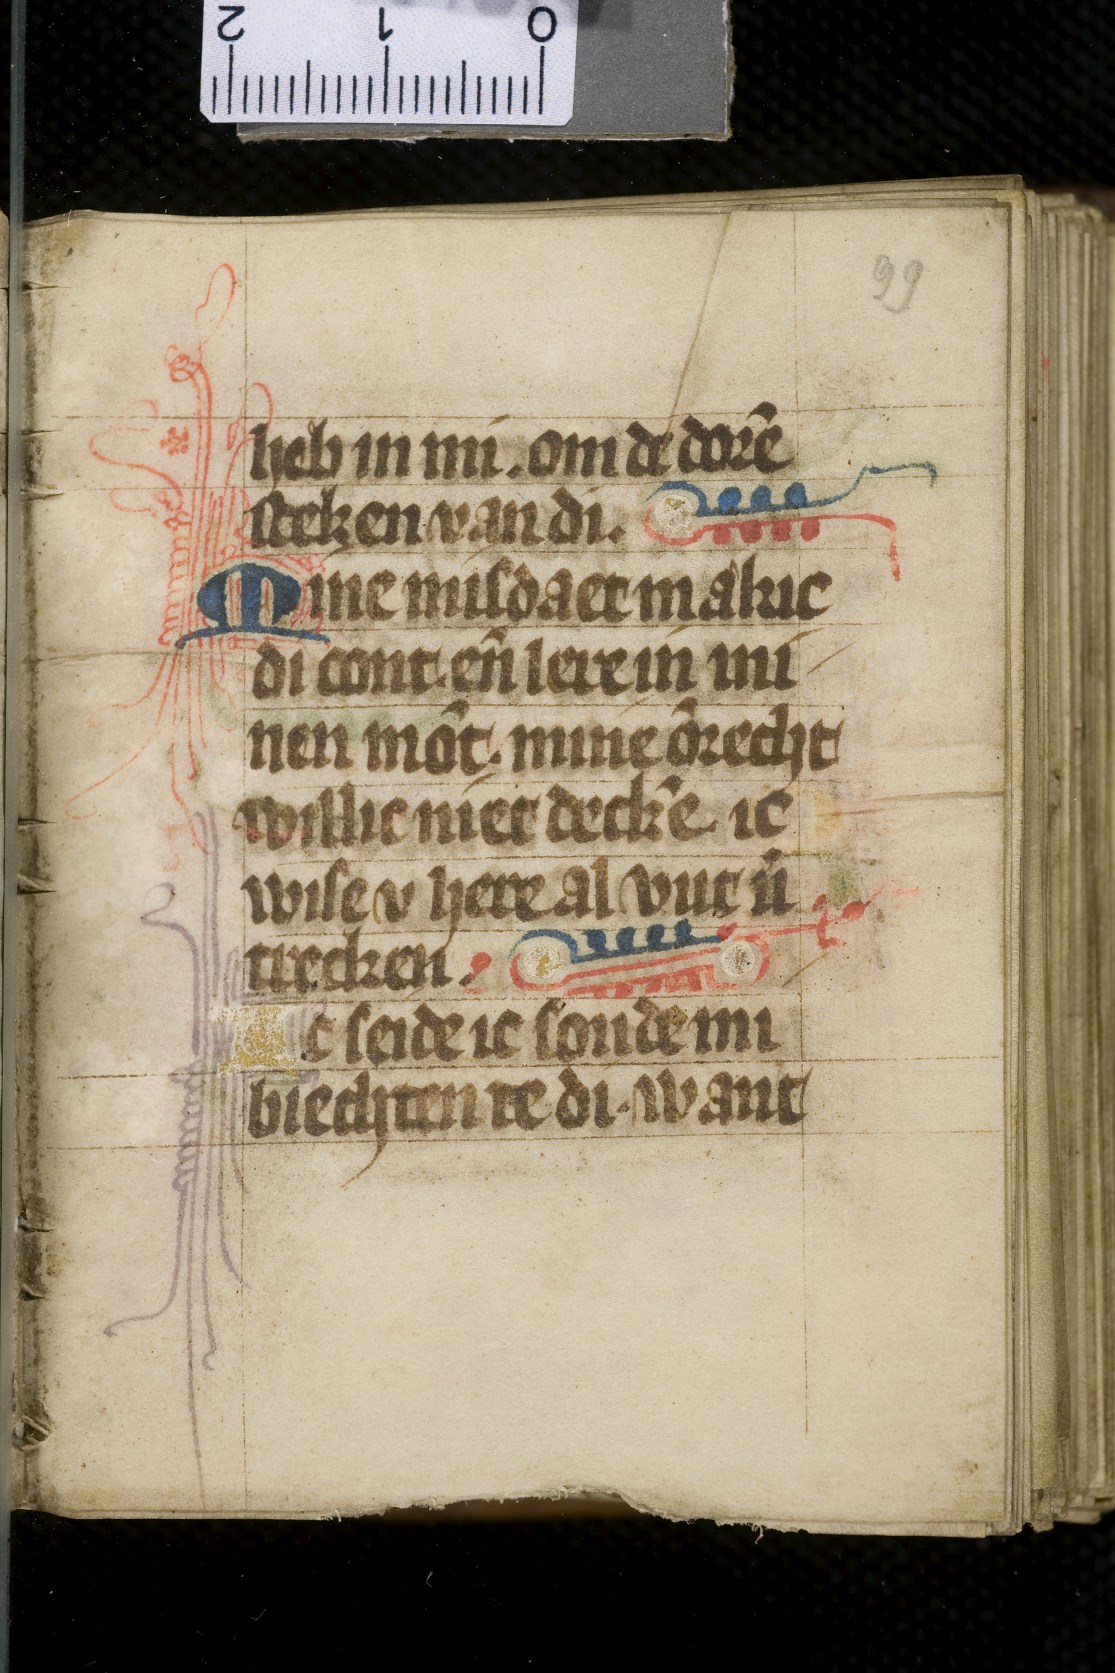 2 1 0
99
heb in mi. om de dorē
steken van di.
Mine misdaet makic
di cont. en̄ lere in mi
nen mōt. mine ōrecht
willic niet deckē. ic
wise v here al vut v̄
trecken.
Ic seide ic sonde mi
biechten te di. want